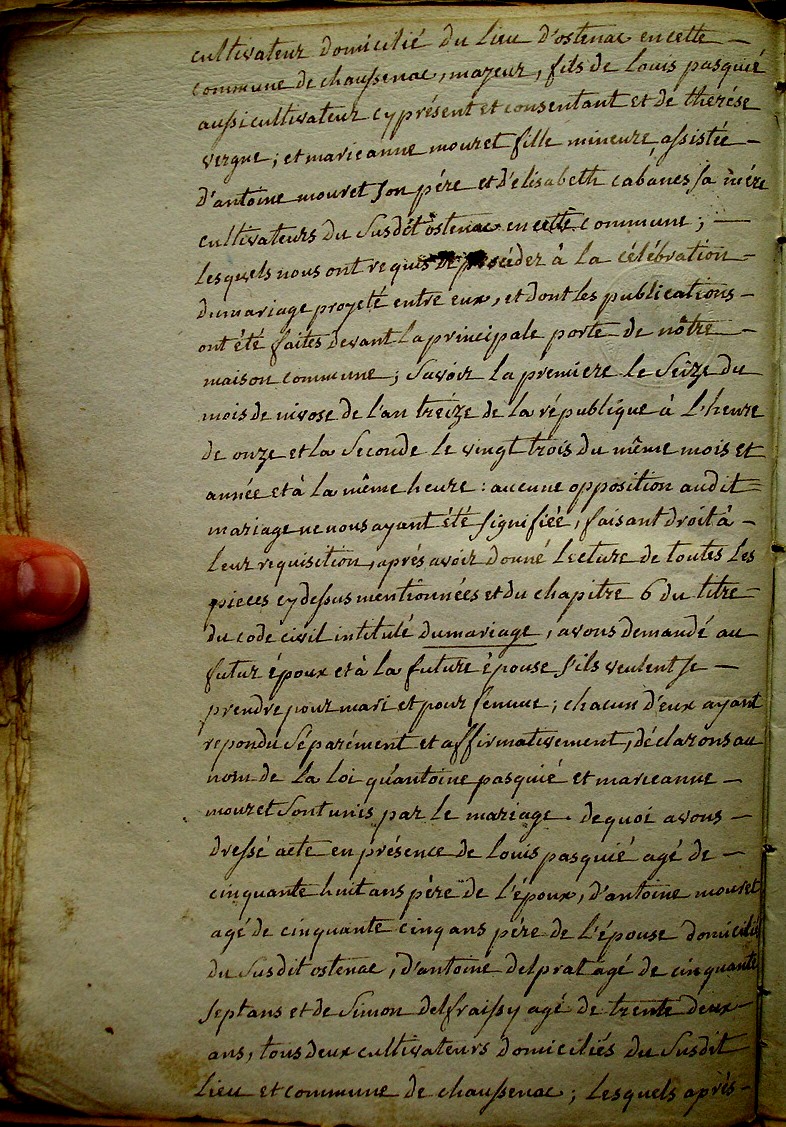 cultivateur domicilié du Lieu d'ostenac en cette —
commune de chaussenac, majeur, fils de Louis pasquié
aussi cultivateur cy présent et consentant et de thérése
vergne; et marieanne mouret fille mineure, assistée —
d'antoine mouret son pére et d'elisabeth cabánes sa mére
cultivateurs du Susdit ostenac en cette commune; —
Lesquels nous ont requis de procéder à la célébration —
du mariage projeté entre eux, et dont les publications —
ont été faites devant La principale porte de nôtre —
maison commune; Savoir la premiere le Seize du
mois de nivose de l'an treize de la république à L'heure
de onze et la Seconde le vingt trois du même mois et
année et à la même heure: aucune opposition audit =
mariage ne nous ayant été signifiée, faisant droit à —
Leur requisition, aprés avoir donné Lecture de toutes Les
pieces cy dessus mentionnées et du chapitre 6 du titre —
du code civil intitulé du mariage, avons demandé au
futur époux et à la future épouse s'ils veulent se —
prendre pour mari et pour femme; chacun d'eux ayant
repondu Séparément et affirmativement, déclarons au
nom de La loi qu'antoine pasquié et marieanne —
mouret Sont unis par le mariage. de quoi avons —
dressé acte en présence de Louis pasquié agé de —
cinquante huit ans pére de l'époux, d'antoine mouret
agé de cinquante cinq ans pére de L'épouse domicilié
du Susdit ostenac, d'antoine delprat agé de cinquante
Sept ans et de Simon delfraissy agé de trente deux —
ans, tous deux cultivateurs domiciliés du Susdit
Lieu et commune de chaussenac; Lesquels aprés —